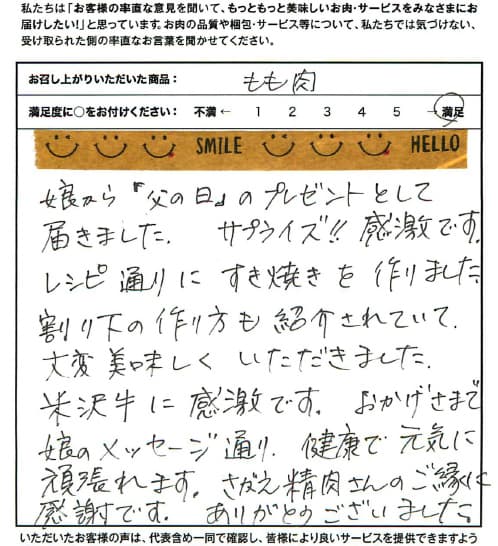 私たちは「お客様の率直な意見を聞いて、もっともっと美味しいお肉・サービスをみなさまにお
届けしたい!」と思っています。お肉の品質や梱包・サービス等について、私たちでは気づけない、
受け取られた側の率直なお言葉を聞かせてください。
お召し上がりいただいた商品： もも肉
満足度に○をお付けください： 不満 ← 1 2 3 4 5 → 満足
SMILE HELLO
娘から『父の日』のプレゼントとして
届きました. サプライズ!! 感激です.
レシピ通りに すき焼きを 作りました.
割り下の作り方も 紹介されていて.
大変美味しく いただきました.
米沢牛に感激です. おかげさまで
娘のメッセージ通り. 健康で 元気に
頑張れます. さがえ精肉さんのご縁に
感謝です. ありがとうございました.
いただいたお客様の声は、代表含め一同で確認し、皆様により良いサービスを提供できますよう